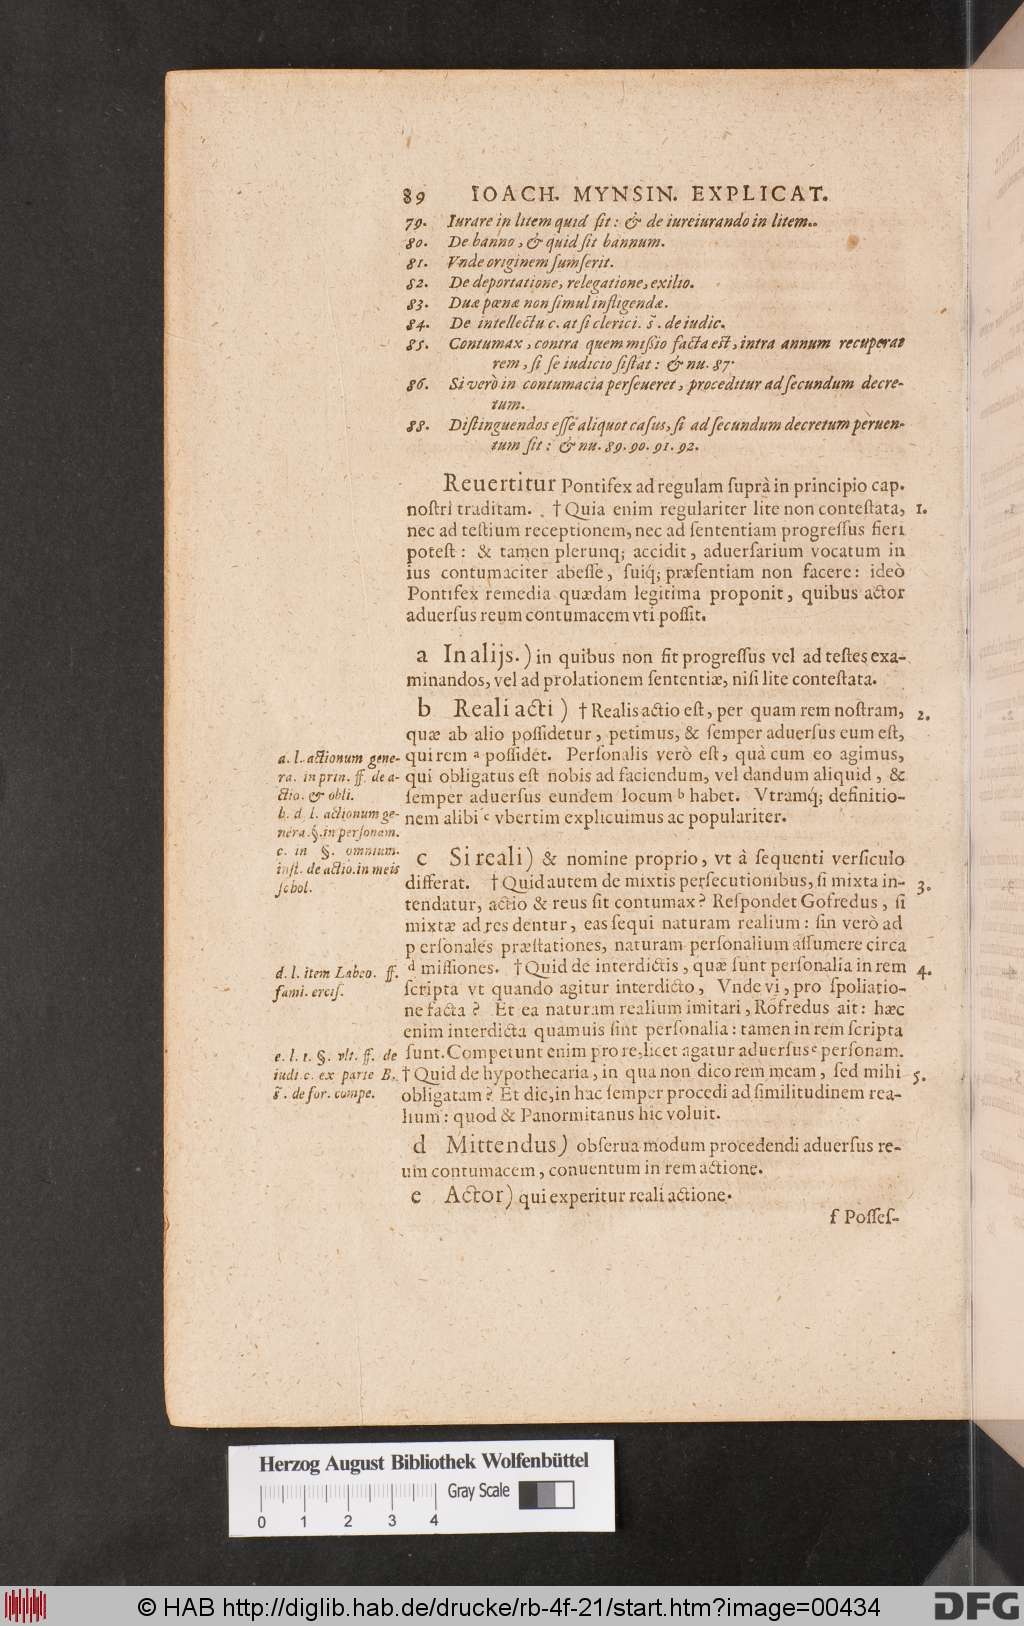 89 IOACH. MYNSIN. EXPLICAT.
79. Iurare in litem quid ſit: & de iureiurando in litem..
80. De banno, & quid ſit bannum.
81. Vnde originem ſumſerit.
82. De deportatione, relegatione, exilio.
83. Duæ pœnæ non ſimul infligendæ.
84. De intellectu c. at ſi clerici. s̃. de iudic.
85. Contumax, contra quem miſsio facta eſt, intra annum recuperat
rem, ſi ſe iudicio ſiſtat: & nu. 87.
86. Si verò in contumacia perſeueret, proceditur ad ſecundum decre-
tum.
88. Diſtinguendos eſſe aliquot caſus, ſi ad ſecundum decretum peruen-
tum ſit: & nu. 89. 90. 91. 92.
Reuertitur Pontifex ad regulam ſuprà in principio cap.
noſtri traditam. † Quia enim regulariter lite non conteſtata, 1.
nec ad teſtium receptionem, nec ad ſententiam progreſſus fieri
poteſt: & tamen plerunq; accidit, aduerſarium vocatum in
ius contumaciter abeſſe, ſuiq́; præſentiam non facere: ideò
Pontifex remedia quædam legitima proponit, quibus actor
aduerſus reum contumacem vti poſſit.
a In alijs.) in quibus non fit progreſſus vel ad teſtes exa-
minandos, vel ad prolationem ſententiæ, niſi lite conteſtata.
b Reali acti) † Realis actio eſt, per quam rem noſtram, 2.
quæ ab alio poſſidetur, petimus, & ſemper aduerſus eum eſt,
qui rem a poſſidet. Perſonalis verò eſt, quà cum eo agimus,
qui obligatus eſt nobis ad faciendum, vel dandum aliquid, &
ſemper aduerſus eundem locum b habet. Vtramq́; definitio-
nem alibi c vbertim explicuimus ac populariter.
a. l. actionum gene-
ra. in prin. ff. de a-
ctio. & obli.
b. d. l. actionum ge-
nera. §. in perſonam.
c. in §. omnium.
inſt. de actio. in meis
ſchol.
c Si reali) & nomine proprio, vt à ſequenti verſiculo
differat. † Quid autem de mixtis perſecutionibus, ſi mixta in- 3.
tendatur, actio & reus ſit contumax? Reſpondet Gofredus, ſi
mixtæ ad res dentur, eas ſequi naturam realium: ſin verò ad
perſonales præſtationes, naturam perſonalium aſſumere circa
d miſſiones. † Quid de interdictis, quæ ſunt perſonalia in rem 4.
ſcripta vt quando agitur interdicto, Vnde vi, pro ſpoliatio-
ne facta? Et ea naturam realium imitari, Rofredus ait: hæc
enim interdicta quamuis ſint perſonalia: tamen in rem ſcripta
ſunt. Competunt enim pro re, licet agatur aduerſus e perſonam.
† Quid de hypothecaria, in qua non dico rem meam, ſed mihi 5.
obligatam? Et dic, in hac ſemper procedi ad ſimilitudinem rea-
lium: quod & Panormitanus hic voluit.
d. l. item Labeo. ff.
fami. erciſ.
e. l. 1. §. vlt. ff. de
iudi. c. ex parte B.
s̃. de for. compe.
d Mittendus) obſerua modum procedendi aduerſus re-
um contumacem, conuentum in rem actione.
e Actor) qui experitur reali actione.
f Poſſeſ-
Herzog August Bibliothek Wolfenbüttel
Gray Scale
0 1 2 3 4
© HAB http://diglib.hab.de/drucke/rb-4f-21/start.htm?image=00434
DFG